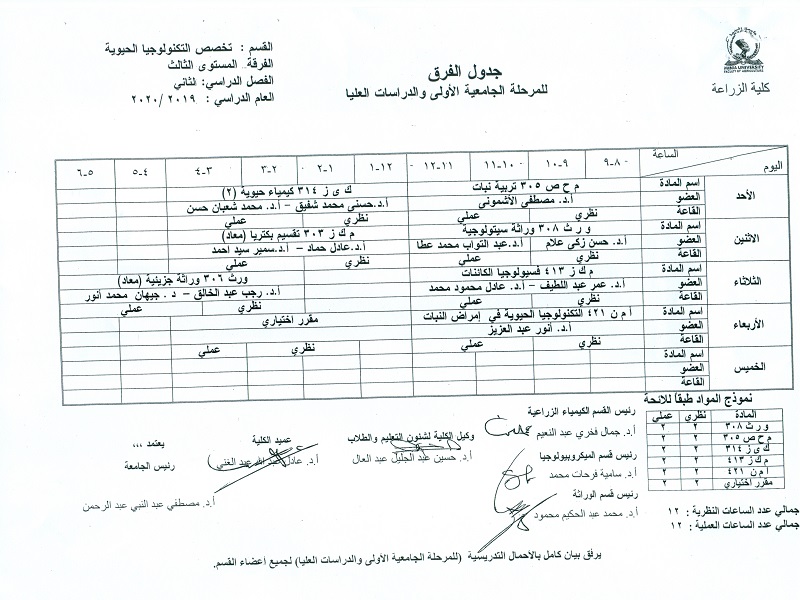 MINIA UNIVERSITY
FACULTY OF AGRICULTURE
كلية الزراعة
جدول الفرق
للمرحلة الجامعية الأولى والدراسات العليا
القسم : تخصص التكنولوجيا الحيوية
الفرقة: المستوى الثالث
الفصل الدراسي: الثاني
العام الدراسي : ٢٠١٩/ ٢٠٢٠
الساعة
اليوم
٨-٩ ٩-١٠ ١٠-١١ ١١-١٢ ١٢-١ ١-٢ ٢-٣ ٣-٤ ٤-٥ ٥-٦
الأحد
اسم المادة م ح ص ٣٠٥ تربية نبات ك ى ز ٣١٤ كيمياء حيوية (٢)
العضو أ.د. مصطفى الأشموني أ.د.حسنى محمد شفيق - أ.د. محمد شعبان حسن
القاعة نظري عملي نظري عملي
الاثنين
اسم المادة و ر ث ٣٠٨ وراثة سيتولوجية م ك ز ٣٠٣ تقسيم بكتريا (معاد)
العضو أ.د. حسن زكى علام أ.د.عبد التواب محمد عطا أ.د.عادل حماد - أ.د.سمير سيد احمد
القاعة نظري عملي نظري عملي
الثلاثاء
اسم المادة م ك ز ٤١٣ فسيولوجيا الكائنات ورث ٣٠٦ وراثة جزيئية (معاد)
العضو أ.د. عمر عبد اللطيف - أ.د. عادل محمود محمد أ.د. رجب عبد الخالق - د . جيهان محمد أنور
القاعة نظري عملي نظري عملي
الأربعاء
اسم المادة أ م ن ٤٢١ التكنولوجيا الحيوية في إمراض النبات مقرر اختياري
العضو أ.د. أنور عبد العزيز
القاعة نظري عملي نظري عملي
الخميس
اسم المادة
العضو
القاعة
نموذج المواد طبقا للائحة
المادة نظري عملي
و ر ث ٣٠٨ ٢ ٢
م ح ص ٣٠٥ ٢ ٢
ك ى ز ٣١٤ ٢ ٢
م ك ز ٤١٣ ٢ ٢
أ م ن ٤٢١ ٢ ٢
مقرر اختياري ٢ ٢
جمالي عدد الساعات النظرية : ١٢
جمالي عدد الساعات العملية : ١٢
رئيس القسم الكيمياء الزراعية
أ.د. جمال فخري عبد النعيم
رئيس قسم الميكروبيولوجيا
أ.د. سامية فرحات محمد
رئيس قسم الوراثة
أ.د. محمد عبد الحكيم محمود
وكيل الكلية لشئون التعليم والطلاب
أ.د. حسين عبد الجليل عبد العال
عميد الكلية
أ.د. عادل عبد الله عبد الغني
يعتمد ،،،
رئيس الجامعة
أ.د. مصطفي عبد النبي عبد الرحمن
يرفق بيان كامل بالأحمال التدريسية (للمرحلة الجامعية الأولى والدراسات العليا) لجميع أعضاء القسم.